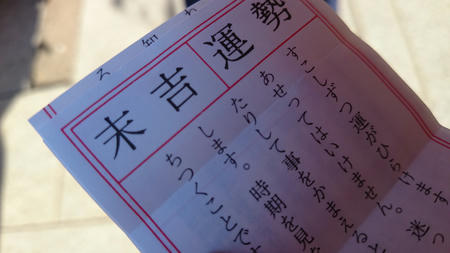 運勢
末吉
すこしずつ運がひらけます
あせってはいけません。迷っ
たりして事をかまえると
します。時期を見
ちつくことです